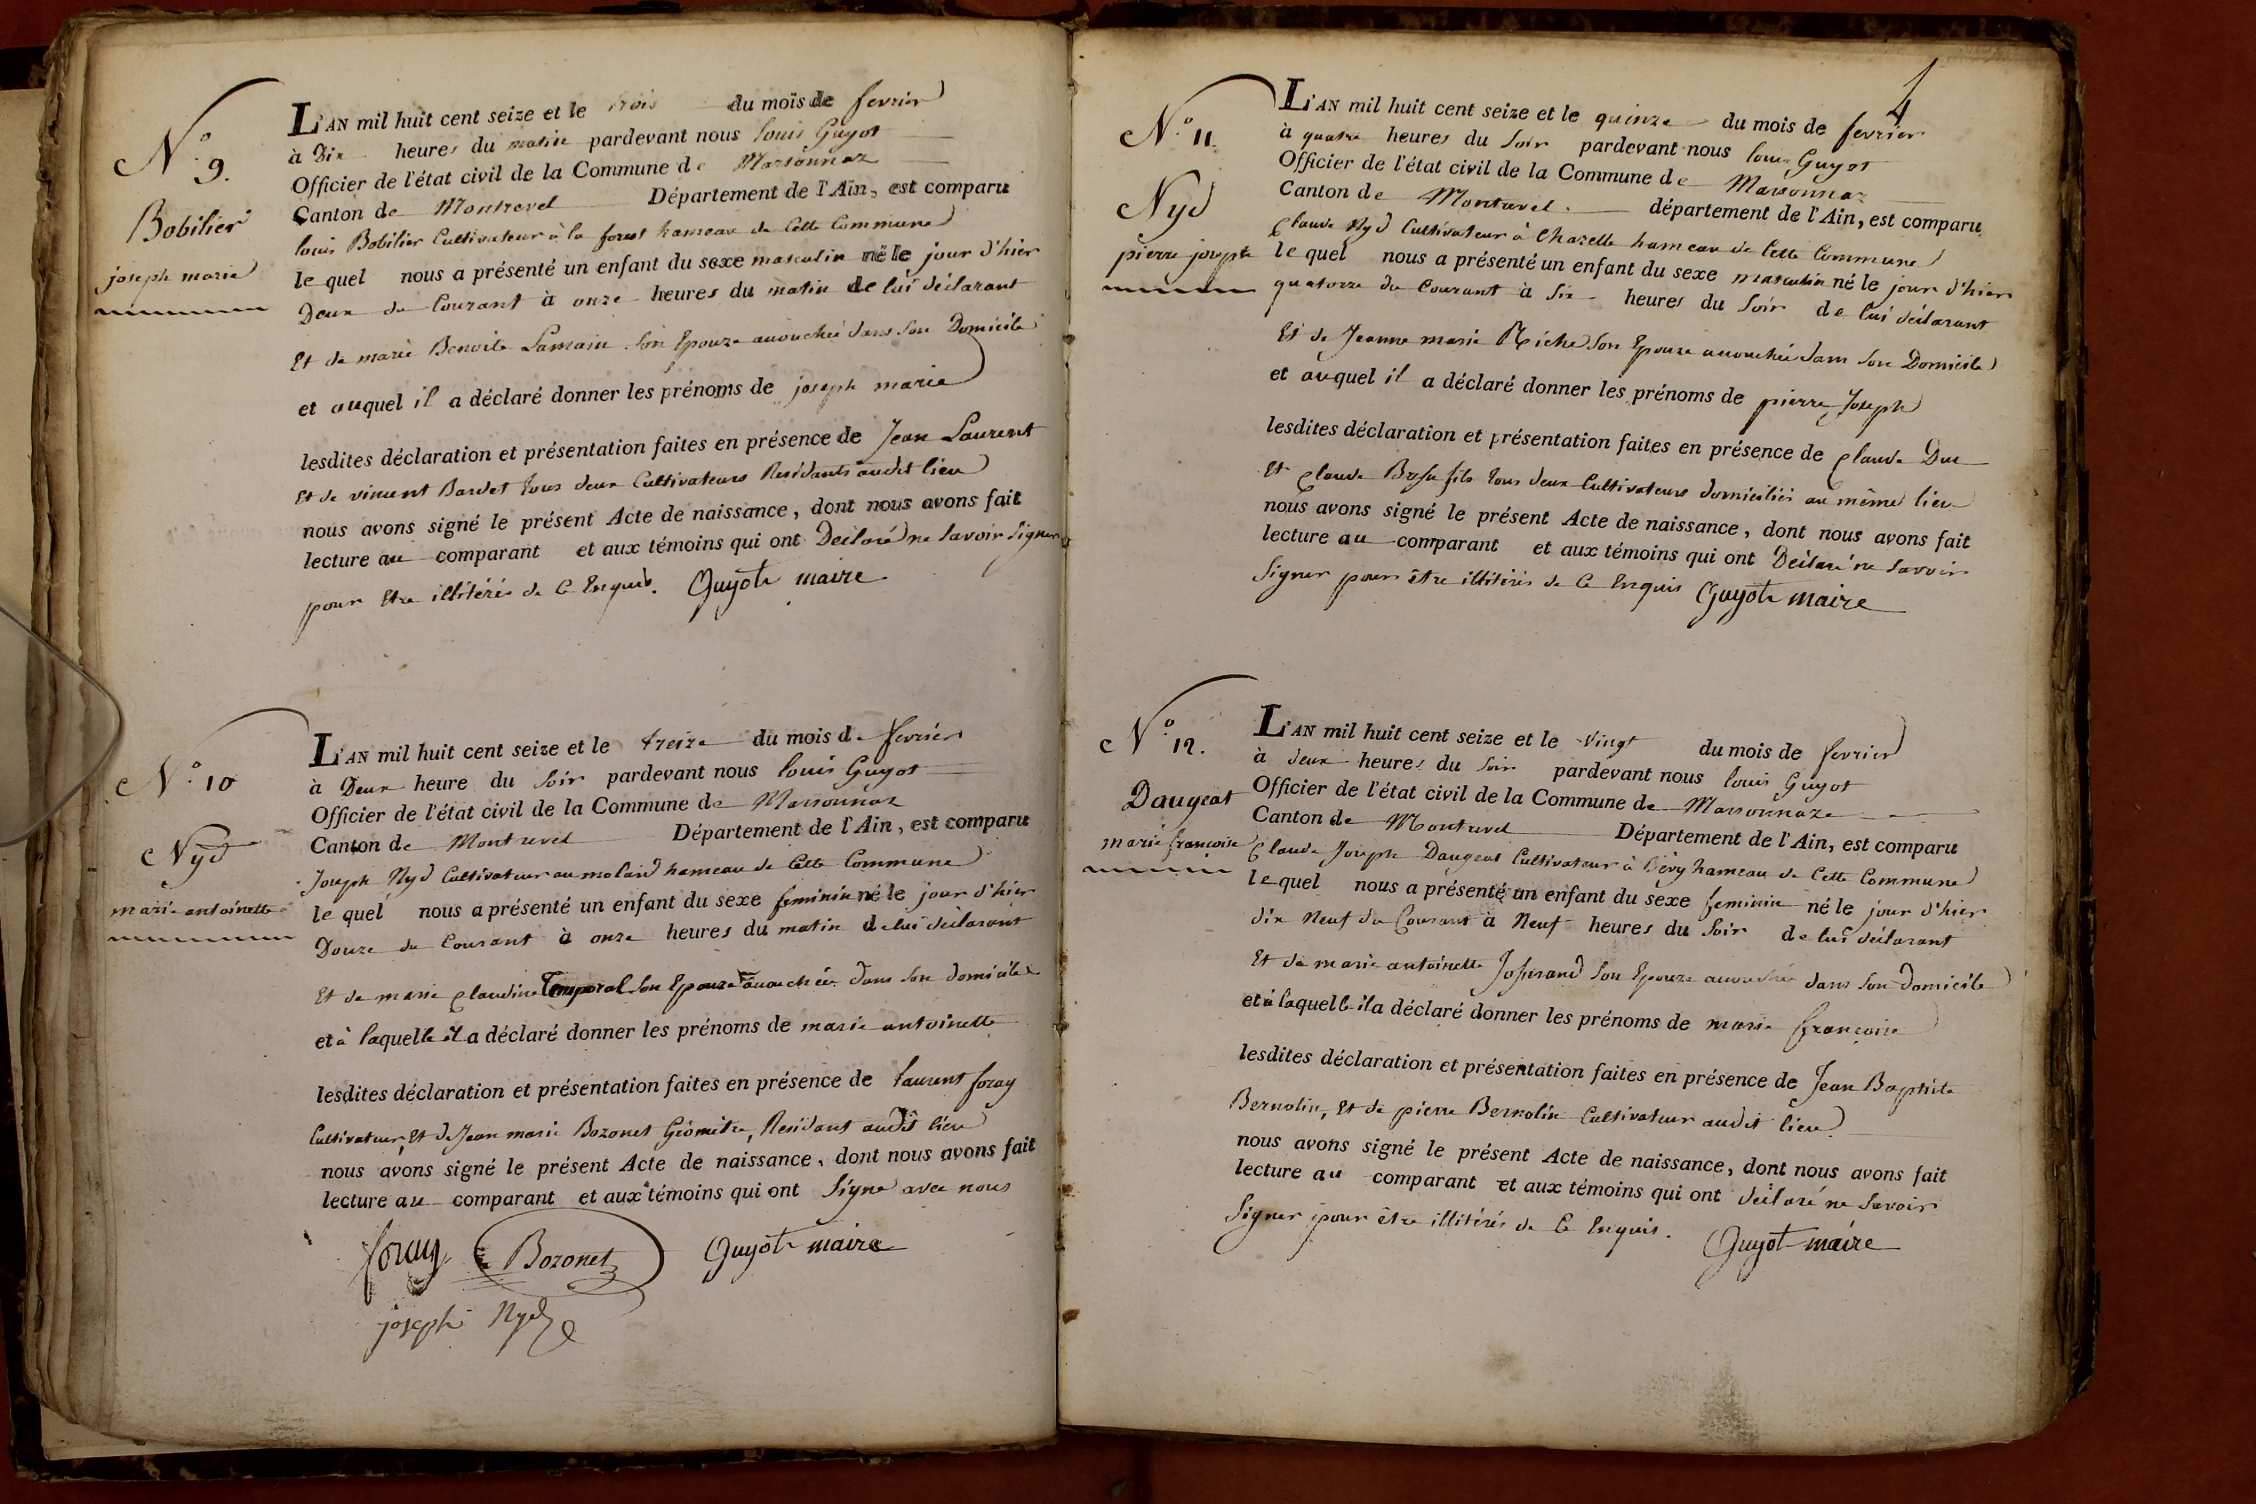 N.° 9.
Bobilier
joseph marie
L'AN mil huit cent seize et le trois du mois de fevrier
à Dix heures du matin pardevant nous louis Guyot
Officier de l'état civil de la Commune de Marsonnaz
Canton de Montrevel Département de l'Ain, est comparu
louis Bobilier Cultivateur à la forest hameau de Cette Commune
le quel nous a présenté un enfant du sexe masculin né le jour d'hier
Deux du Courant à onze heures du matin de lui déclarant
Et de marie Benoite Lamain son Epouze accouchée dans son Domicile
et auquel il a déclaré donner les prénoms de joseph marie
lesdites déclaration et présentation faites en présence de Jean Laurent
Et de vincent Bardet tous deux Cultivateurs Residants audit lieu
nous avons signé le présent Acte de naissance, dont nous avons fait
lecture au comparant et aux témoins qui ont Déclaré ne savoir signer
pour Etre illitérés de Ce Enquis. Guyot maire
N.° 10
Nyd
marie antoinette
L'AN mil huit cent seize et le treize du mois de fevrier
à Deux heure du soir pardevant nous louis Guyot
Officier de l'état civil de la Commune de Marsonnaz
Canton de Montrevel Département de l'Ain, est comparu
Joseph Nyd Cultivateur au molard hameau de Cette Commune
le quel nous a présenté un enfant du sexe feminin né le jour d'hier
Douze du Courant à onze heures du matin de lui déclarant
Et de marie Claudine Temporal son Epouze accouchée dans son domicile
et à laquelle il a déclaré donner les prénoms de marie antoinette
lesdites déclaration et présentation faites en présence de laurent foray
Cultivateur, Et de Jean marie Bozonet Géomètre, Residant audit lieu
nous avons signé le présent Acte de naissance, dont nous avons fait
lecture au comparant et aux témoins qui ont signé avec nous
foray Bozonet Guyot maire
joseph Nyd
4
N.° 11.
Nyd
pierre joseph
L'AN mil huit cent seize et le quinze du mois de fevrier
à quatre heures du soir pardevant nous louis Guyot
Officier de l'état civil de la Commune de Marsonnaz
Canton de Montrevel. département de l'Ain, est comparu
Claude Nyd Cultivateur à Chazelle hameau de Cette Commune
le quel nous a présenté un enfant du sexe masculin né le jour d'hier
quatorze du Courant à six heures du soir de lui déclarant
Et de Jeanne marie Riche son Epouze accouchée dans son Domicile
et auquel il a déclaré donner les prénoms de pierre Joseph
lesdites déclaration et présentation faites en présence de Claude Duc
Et Claude fils tous deux Cultivateurs domiciliés au même lieu
nous avons signé le présent Acte de naissance, dont nous avons fait
lecture au comparant et aux témoins qui ont Déclaré ne savoir
signer pour être illitérés de Ce Enquis Guyot maire
N.° 12.
Daugeat
marie françoise
L'AN mil huit cent seize et le vingt du mois de fevrier
à deux heures du soir pardevant nous louis Guyot
Officier de l'état civil de la Commune de Marsonnaz
Canton de Montrevel Département de l'Ain, est comparu
Claude Joseph Daugeat Cultivateur à Bévy hameau de Cette Commune
le quel nous a présenté un enfant du sexe feminin né le jour d'hier
dix Neuf du Courant à Neuf heures du soir de lui déclarant
Et de marie antoinette Josserand son Epouze accouchée dans son domicile
et à laquelle il a déclaré donner les prénoms de marie françoise
lesdites déclaration et présentation faites en présence de Jean Baptiste
Bernolin, Et de pierre Bernolin Cultivateur audit lieu.
nous avons signé le présent Acte de naissance, dont nous avons fait
lecture au comparant et aux témoins qui ont déclaré ne savoir
signer pour être illitérés de Ce Enquis. Guyot maire